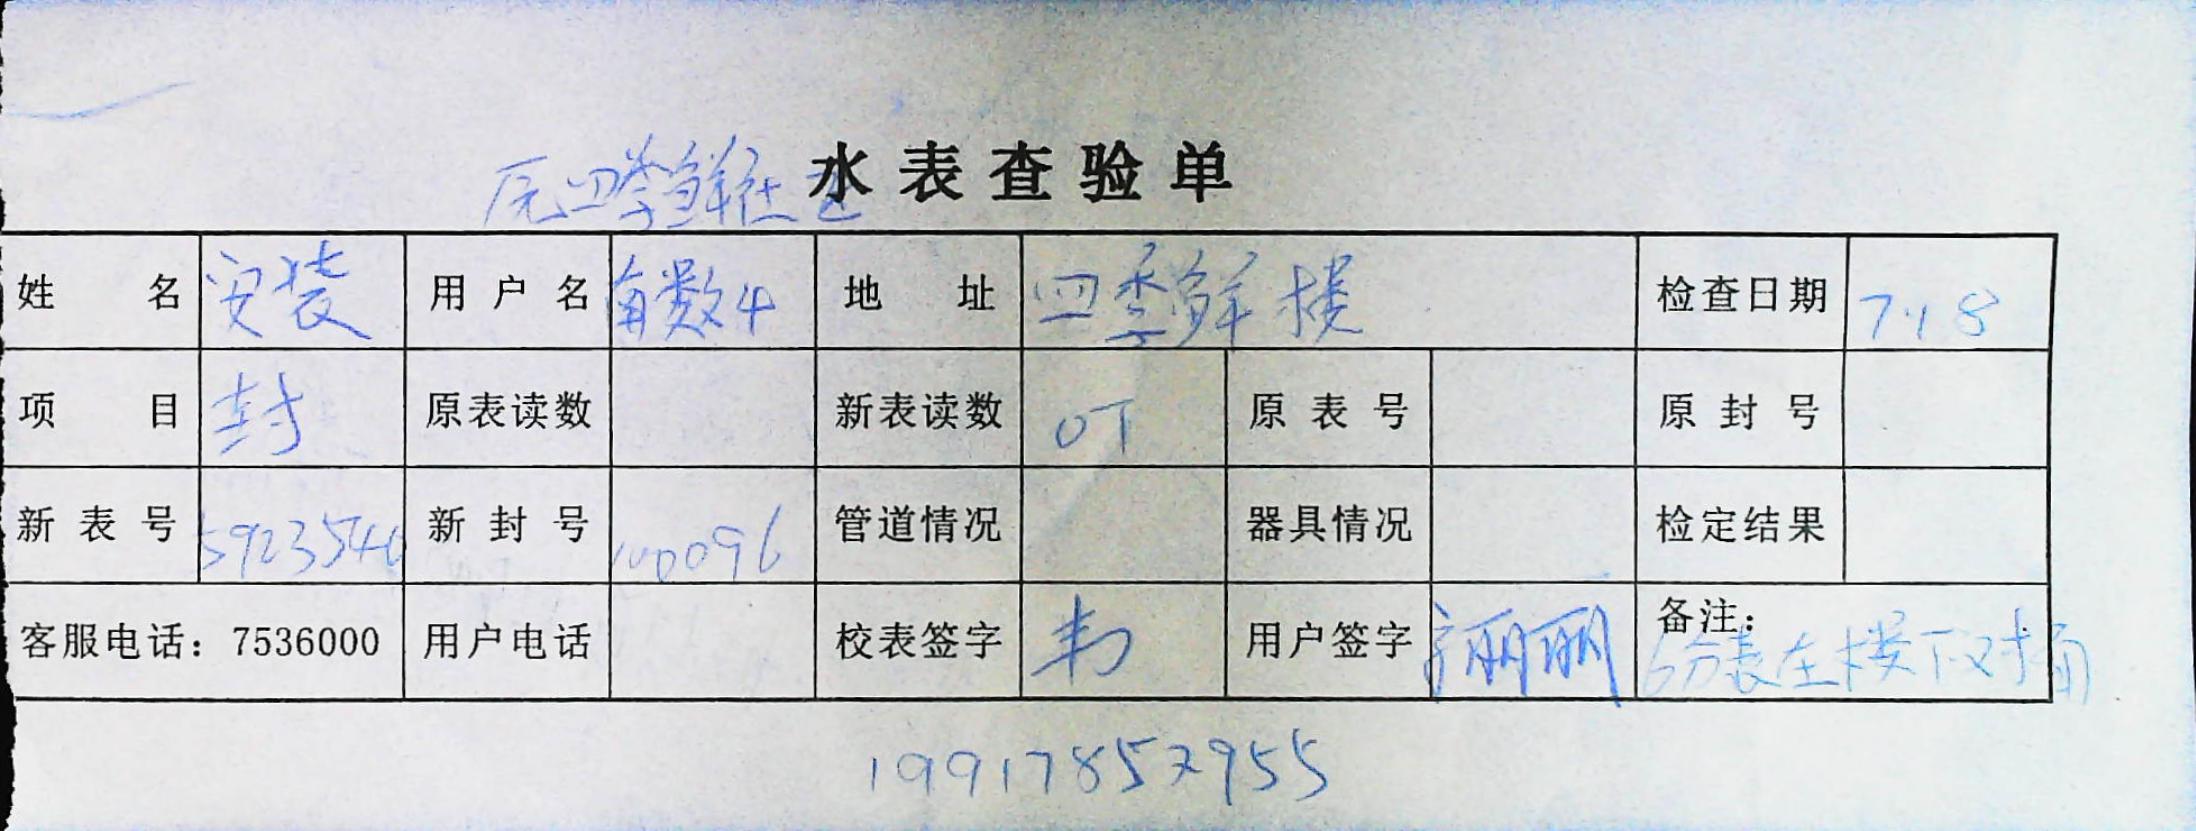 原四季鲜社区
水表查验单
姓名 安装 用户名 南数4 地址 四季鲜楼 检查日期 7.18
项目 封 原表读数 新表读数 0T 原表号 原封号
新表号 5923546 新封号 100096 管道情况 器具情况 检定结果
客服电话：7536000 用户电话 校表签字 韦 用户签字 丽丽 备注：
6分表在楼下对面
19917852955